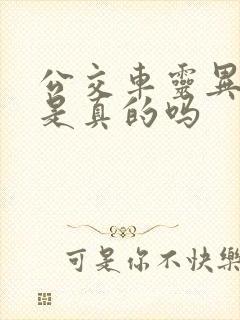 公交車靈異
是真的吗
可是你不快樂